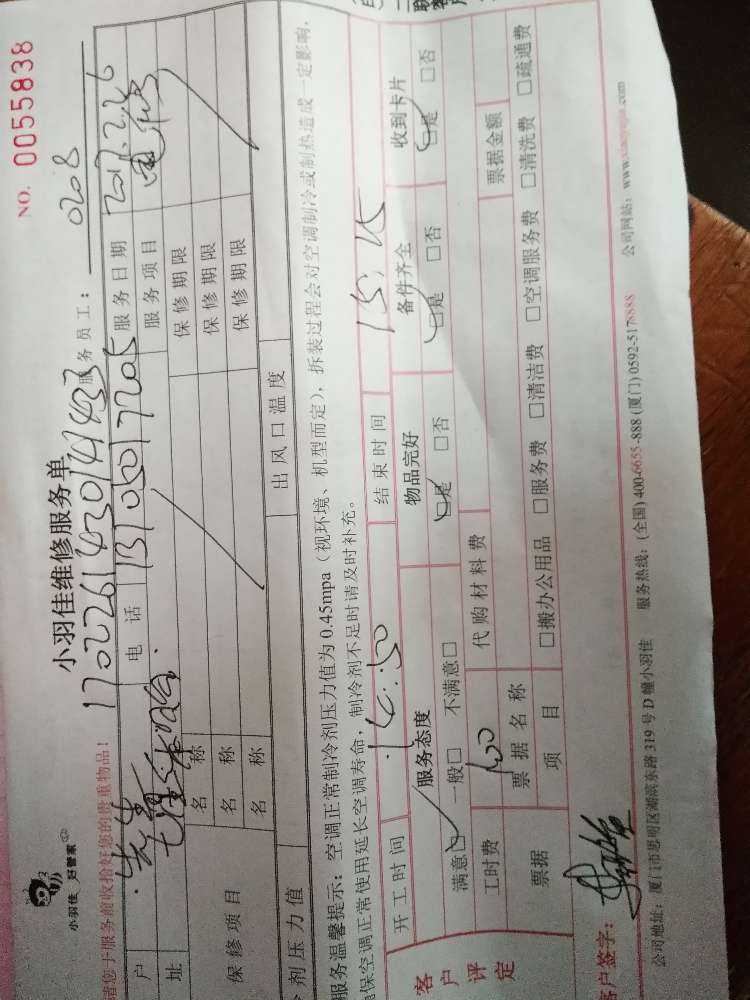 小羽佳 好管家
小羽佳维修服务单
NO. 0055838
请您于服务前收拾好您的贵重物品!
170226143014143
服务员工: 0208
户
电 话 13105017205
服务日期 2017.2.26
址
服务项目
保修项目
名 称
保修期限
名 称
保修期限
名 称
保修期限
剂压力值
出风口温度
服务温馨提示: 空调正常制冷剂压力值为 0.45mpa (视环境、机型而定), 拆装过程会对空调制冷或制热造成一定影响,
保空调正常使用延长空调寿命, 制冷剂不足时请及时补充。
开工时间 14:50 结束时间 15:25
客户评定
服务态度 物品完好 备件齐全 收到卡片
满意□ 一般□ 不满意□ □是 □否 □是 □否 □是 □否
工时费 100 代购材料费 票据金额
票据 票据名称项目 □搬办公用品 □服务费 □清洁费 □空调服务费 □清洗费 □疏通费
客户签字:
公司地址: 厦门市思明区湖滨东路 319 号 D 幢小羽佳 服务热线: (全国) 400-6655-888 (厦门) 0592-5178888 公司网站: www.xiaoyujia.com